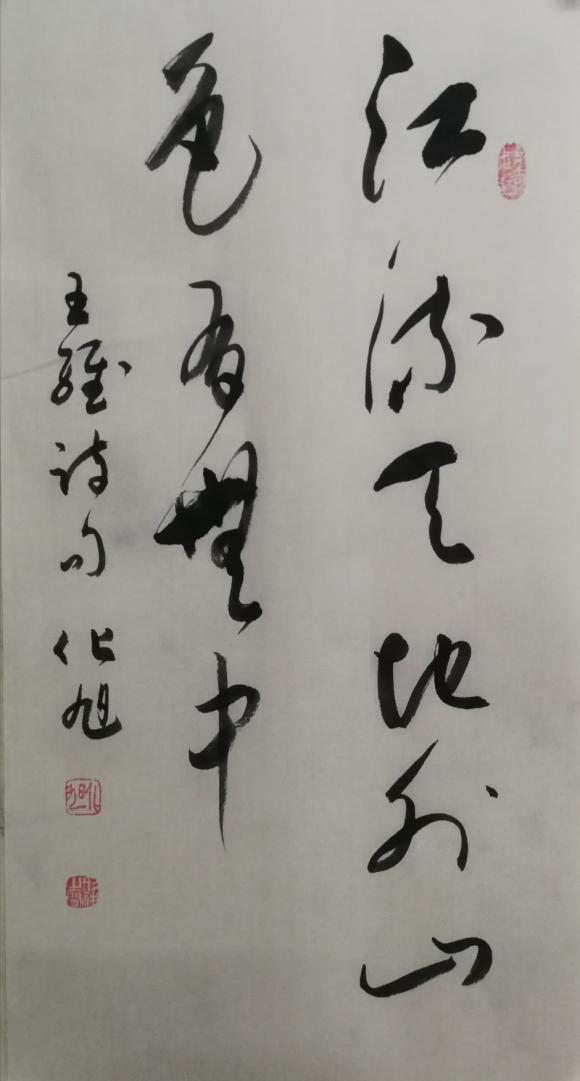 江流天地外山
色有無中
王維詩句 化旭